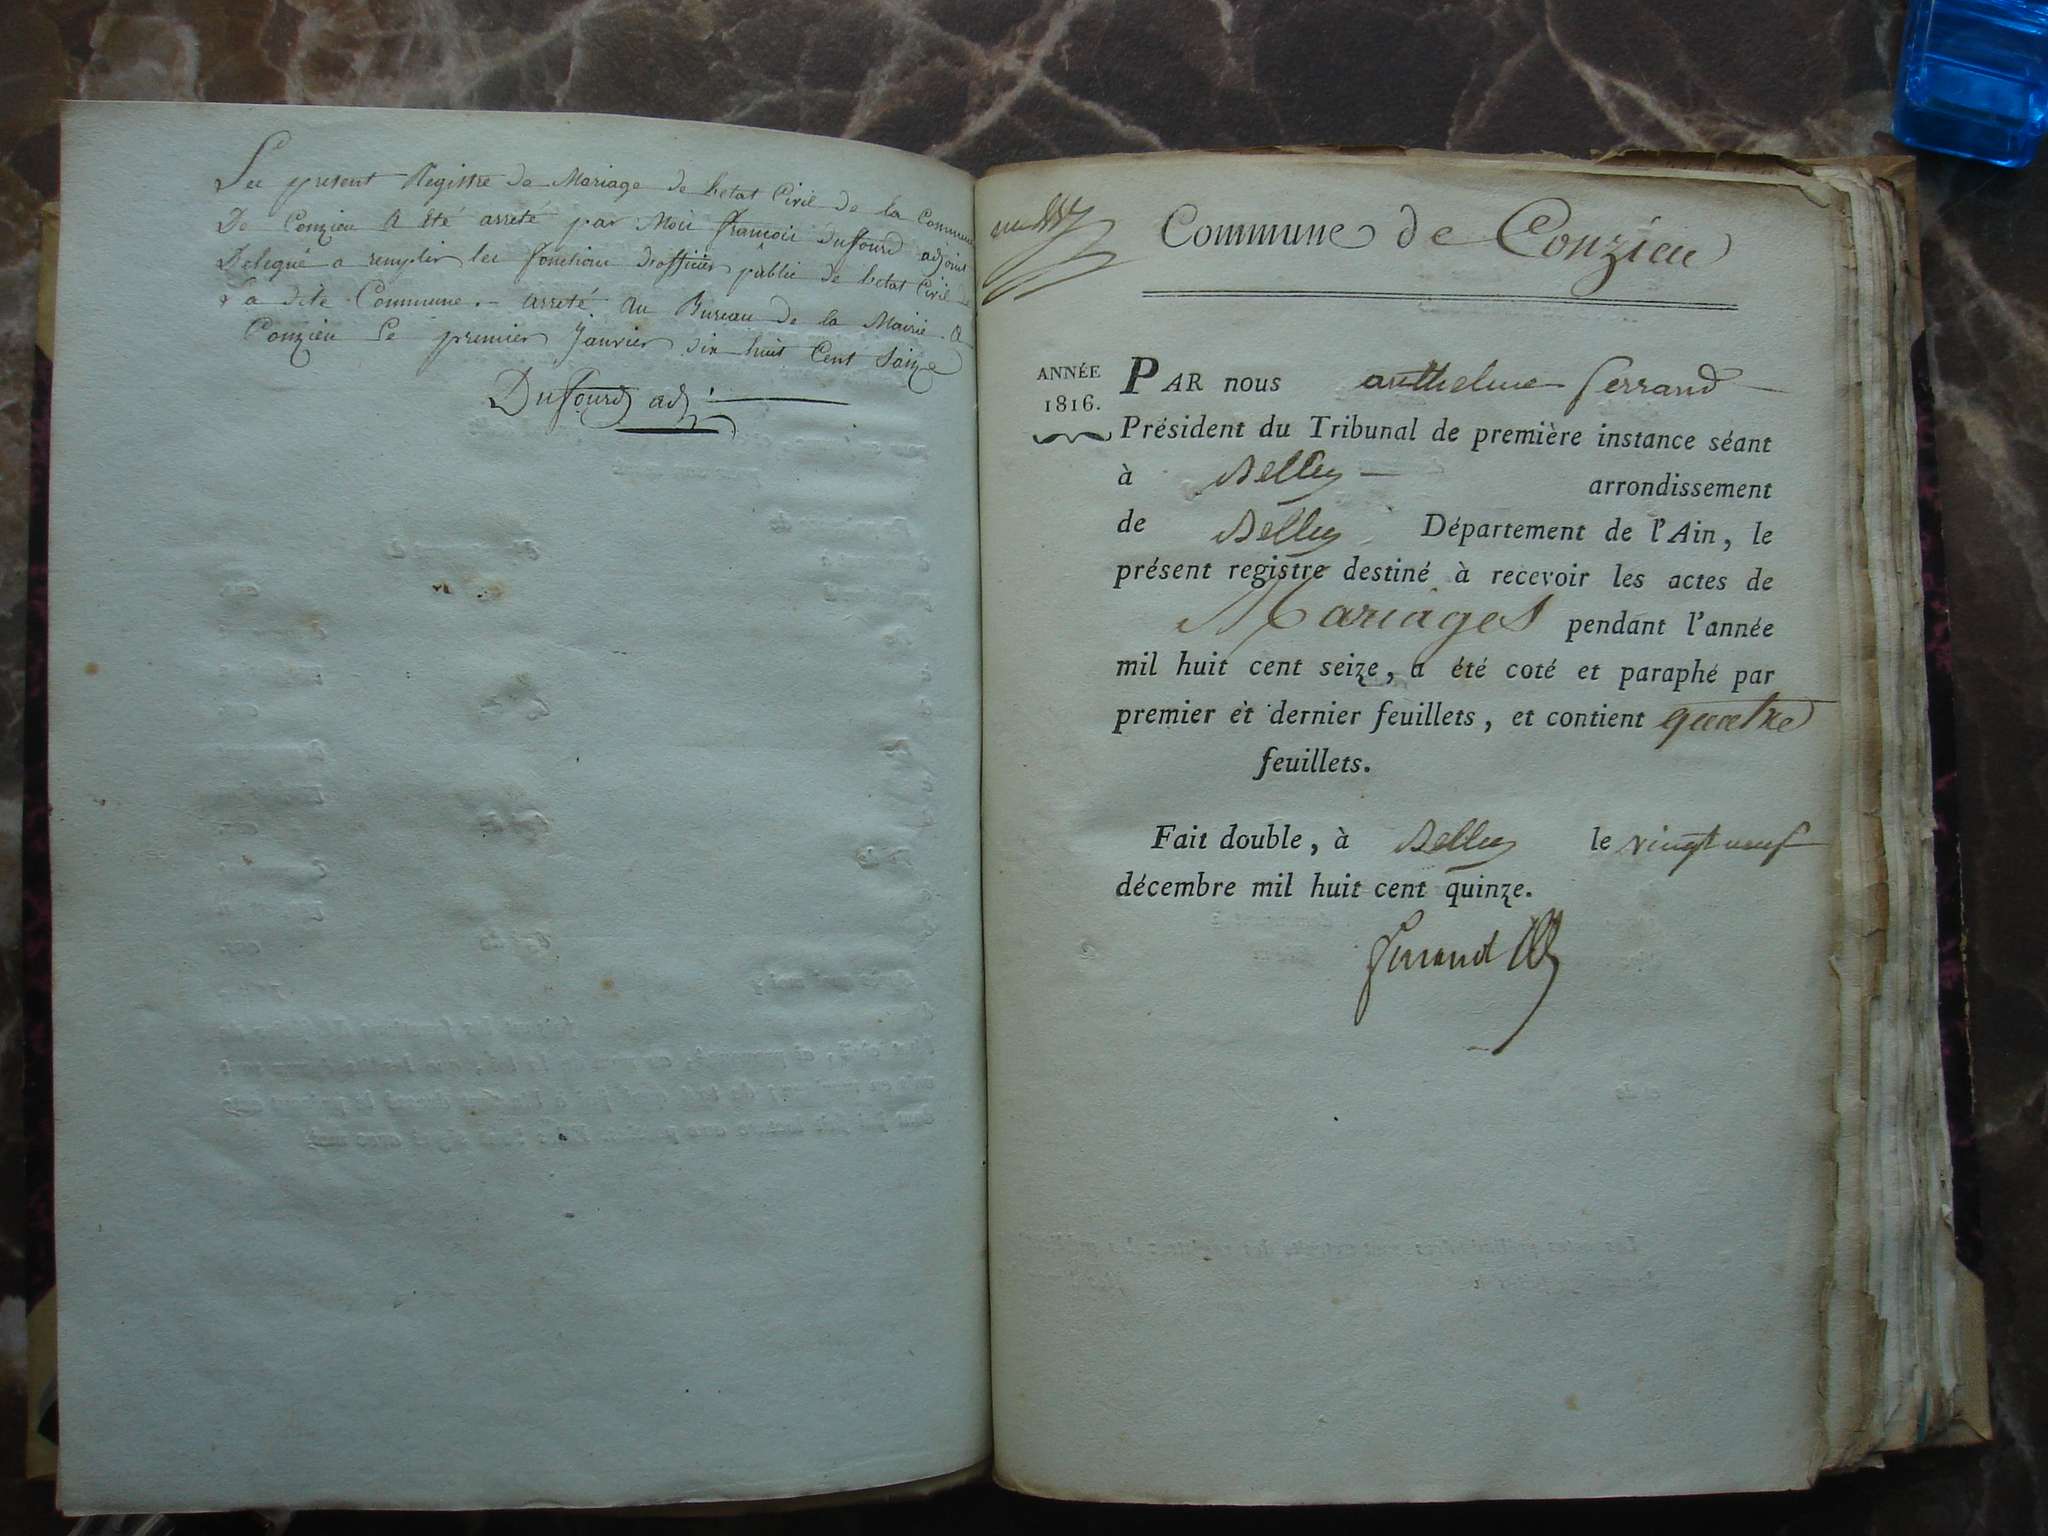 Le présent Registre de Mariage de letat Civil de la Commune
De Conzieu a été arreté par Moi françois duffourd adjoint
Delegué a remplir les fonctions d'officier public de letat Civil de
la dite Commune. arreté au Bureau de la Mairie a
Conzieu Le premier Janvier dix huit Cent Saize
Duffourd adj
Commune de Conzieu
ANNÉE
1816.
PAR nous anthelme ferrand
Président du Tribunal de première instance séant
à Belley arrondissement
de Belley Département de l'Ain, le
présent registre destiné à recevoir les actes de
Mariages pendant l'année
mil huit cent seize, a été coté et paraphé par
premier et dernier feuillets, et contient quatre
feuillets.
Fait double, à Belley le vingt neuf
décembre mil huit cent quinze.